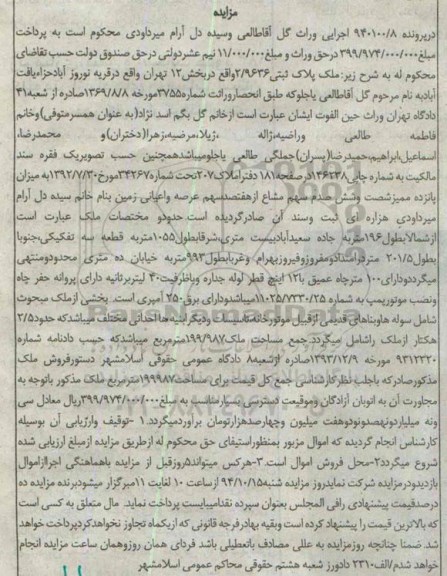 مزایده
درپرونده ۹۴۰۱۰۰/۸ اجرایی وراث گل آقاطالعی وسیده دل آرام میردادودی محکوم است به پرداخت
مبلغ۳۹۹/۹۷۴/۰۰۰/۰۰۰ درحق وراث و مبلغ۱۱/۰۰۰/۰۰۰ نیم عشردولتی درحق صندوق دولت حسب تقاضای
محکوم له به شرح زیر: ملک پلاک ثبتی۲/۹۶۳۶واقع دربخش۱۲ تهران واقع درقریه نوروز آبادحزءبافت
آبادبه نام مرحوم گل آقاطالعی یاجلوکه طبق انحصاروراثت شماره۳۷۵۵مورخه ۱۳۶۹/۸/۸صادره از شعبه۴۱
دادگاه تهران وراث حین الفوت ایشان عبارت است ازخانم گل بگم اسد نژاد(به عنوان همسرمتوفی)وخانم
فاطمه طالعی وراضیه،ژاله ،ژیلا،مرضیه،زهرا(دختران)و محمدرضا،
اسماعیل،ابراهیم،حمیدرضا(پسران)جملگی طالعی یاجلومیباشدهمچنین حسب تصویریک فقره سند
مالکیت به شماره چاپی۱۴۶۲۳۸درصفحه۱۸۱ دفتراملاک۲۰۷تحت شماره۳۴۲۶۷مورخ۱۳۹۲/۷/۳۰به میزان
پانزده ممیزشصت وشش صدم سهم مشاع ازهفتصدسهم عرصه واعیانی زمین بنام خانم سیده دل آرام
میرداودی هزاره ای ثبت وسند آن صادرگردیده است.حدودو مختصات ملک عبارت است
ازشمالابطول۱۹۶متربه جاده سعیدآبادبیست متری،شرقابطول۱۰۵۵متربه قطعه سه تفکیکی،جنوبا
بطول ۲۰۱/۵ متردرامتدادومفروزوفیروزبهرام وغربابطول۹۹۳متربه خیابان ده متری محدودومنتهی
میگردددارای۱۰۰ مترچاه عمیق با۱۲ اینچ قطر لوله جداره وباظرفیت۴۰ لیتربرثانیه دارای پروانه حفر چاه
ونصب موتورپمپ به شماره ۱۱۰۲۵/۷۳۳۰/۲۵میباشددارای برق۲۵۰ آمپری است. بخشی ازملک مبحوث
شامل سوله هاوبناهای قدیمی ازقبیل موتورخانه تاسیسات ودیگرابنیه هااحداثی مختلف میباشدکه حدود۲/۵
هکتار ازملک راشامل میگردد.جمع مساحت ملک۱۹۹/۹۸۷مترمربع میباشدکه حسب دادنامه شماره
۹۳۱۲۳۲۰ مورخه ۱۳۹۳/۱۲/۹صادره ازشعبه۸ دادگاه عمومی حقوقی اسلامشهر دستورفروش ملک
مذکورصادرکه باجلب نظرکارشناسی جمع کل قیمت برای مساحت۱۹۹۹۸۷مترمربع ملک مذکور باتوجه به
مجاورت آن به اتوبان آزادگان وموقعیت دسترسی بسیارمناسب به مبلغ۳۹۹/۹۷۴/۰۰۰/۰۰۰ریال معادل سی
ونه میلیاردونهصدونودوهفت میلیون وچهارصدهزارتومان برآوردمیگردد. ۱ -توقیف وارزیابی آن بوسیله
کارشناس انجام گردیده که اموال مزبور بمنظوراستیفای حق محکوم له ازطریق مزایده ازمبلغ ارزیابی شده
شروع میگردد۲-محل فروش اموال است.۳-هرکس میتواند۵روزقبل از مزایده باهماهنگی اجراازاموال
بازدیدودرمزایده شرکت نمایدروز مزایده شنبه۹۴/۱۰/۱۵ ازساعت ۱۰ لغایت ۱۱برگزار میشودبرنده مزایده ده
درصدقیمت پیشنهادی رافی المجلس بعنوان سپرده نقدامیبایست پرداخت نماید. مال متعلق به کسی است
که بالاترین قیمت را پیشنهاد کرده است وبقیه بهادرفرجه قانونی که ازیکماه تجاوز نخواهدکردپرداخت خواهد
شد.ضمنا چنانچه روزمزایده به عللی مصادف باتعطیلی باشد فردای همان روزوهمان ساعت مزایده انجام
خواهد شدم/الف۲۳۱۰ دادورز شعبه هشتم حقوقی محاکم عمومی اسلامشهر